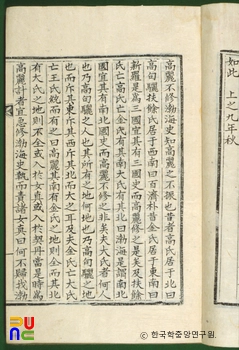 如此 上之九年秋
高麗不修渤海史知高麗之不振也昔者高氏居于北曰
高句驪扶餘氏居于西南曰百濟朴昔金氏居于東南曰
新羅是爲三國宜其有三國史而高麗修之是矣及扶餘
氏亡高氏亡金氏有其南大氏有其北曰渤海是謂南北
國宜其有南北國史而高麗不修之非矣夫大氏者何人
也乃高句驪之人也其所有之地何地也乃高句驪之地
也而斥其東斥其西斥其北而大之耳及夫金氏亡大氏
亡王氏統而有之曰高麗其南有金氏之地則全而其北
有大氏之地則不全或入於女眞或入於契丹當是時爲
高麗計者宜急修渤海史執而責諸女眞曰何不歸我渤
한국학중앙연구원